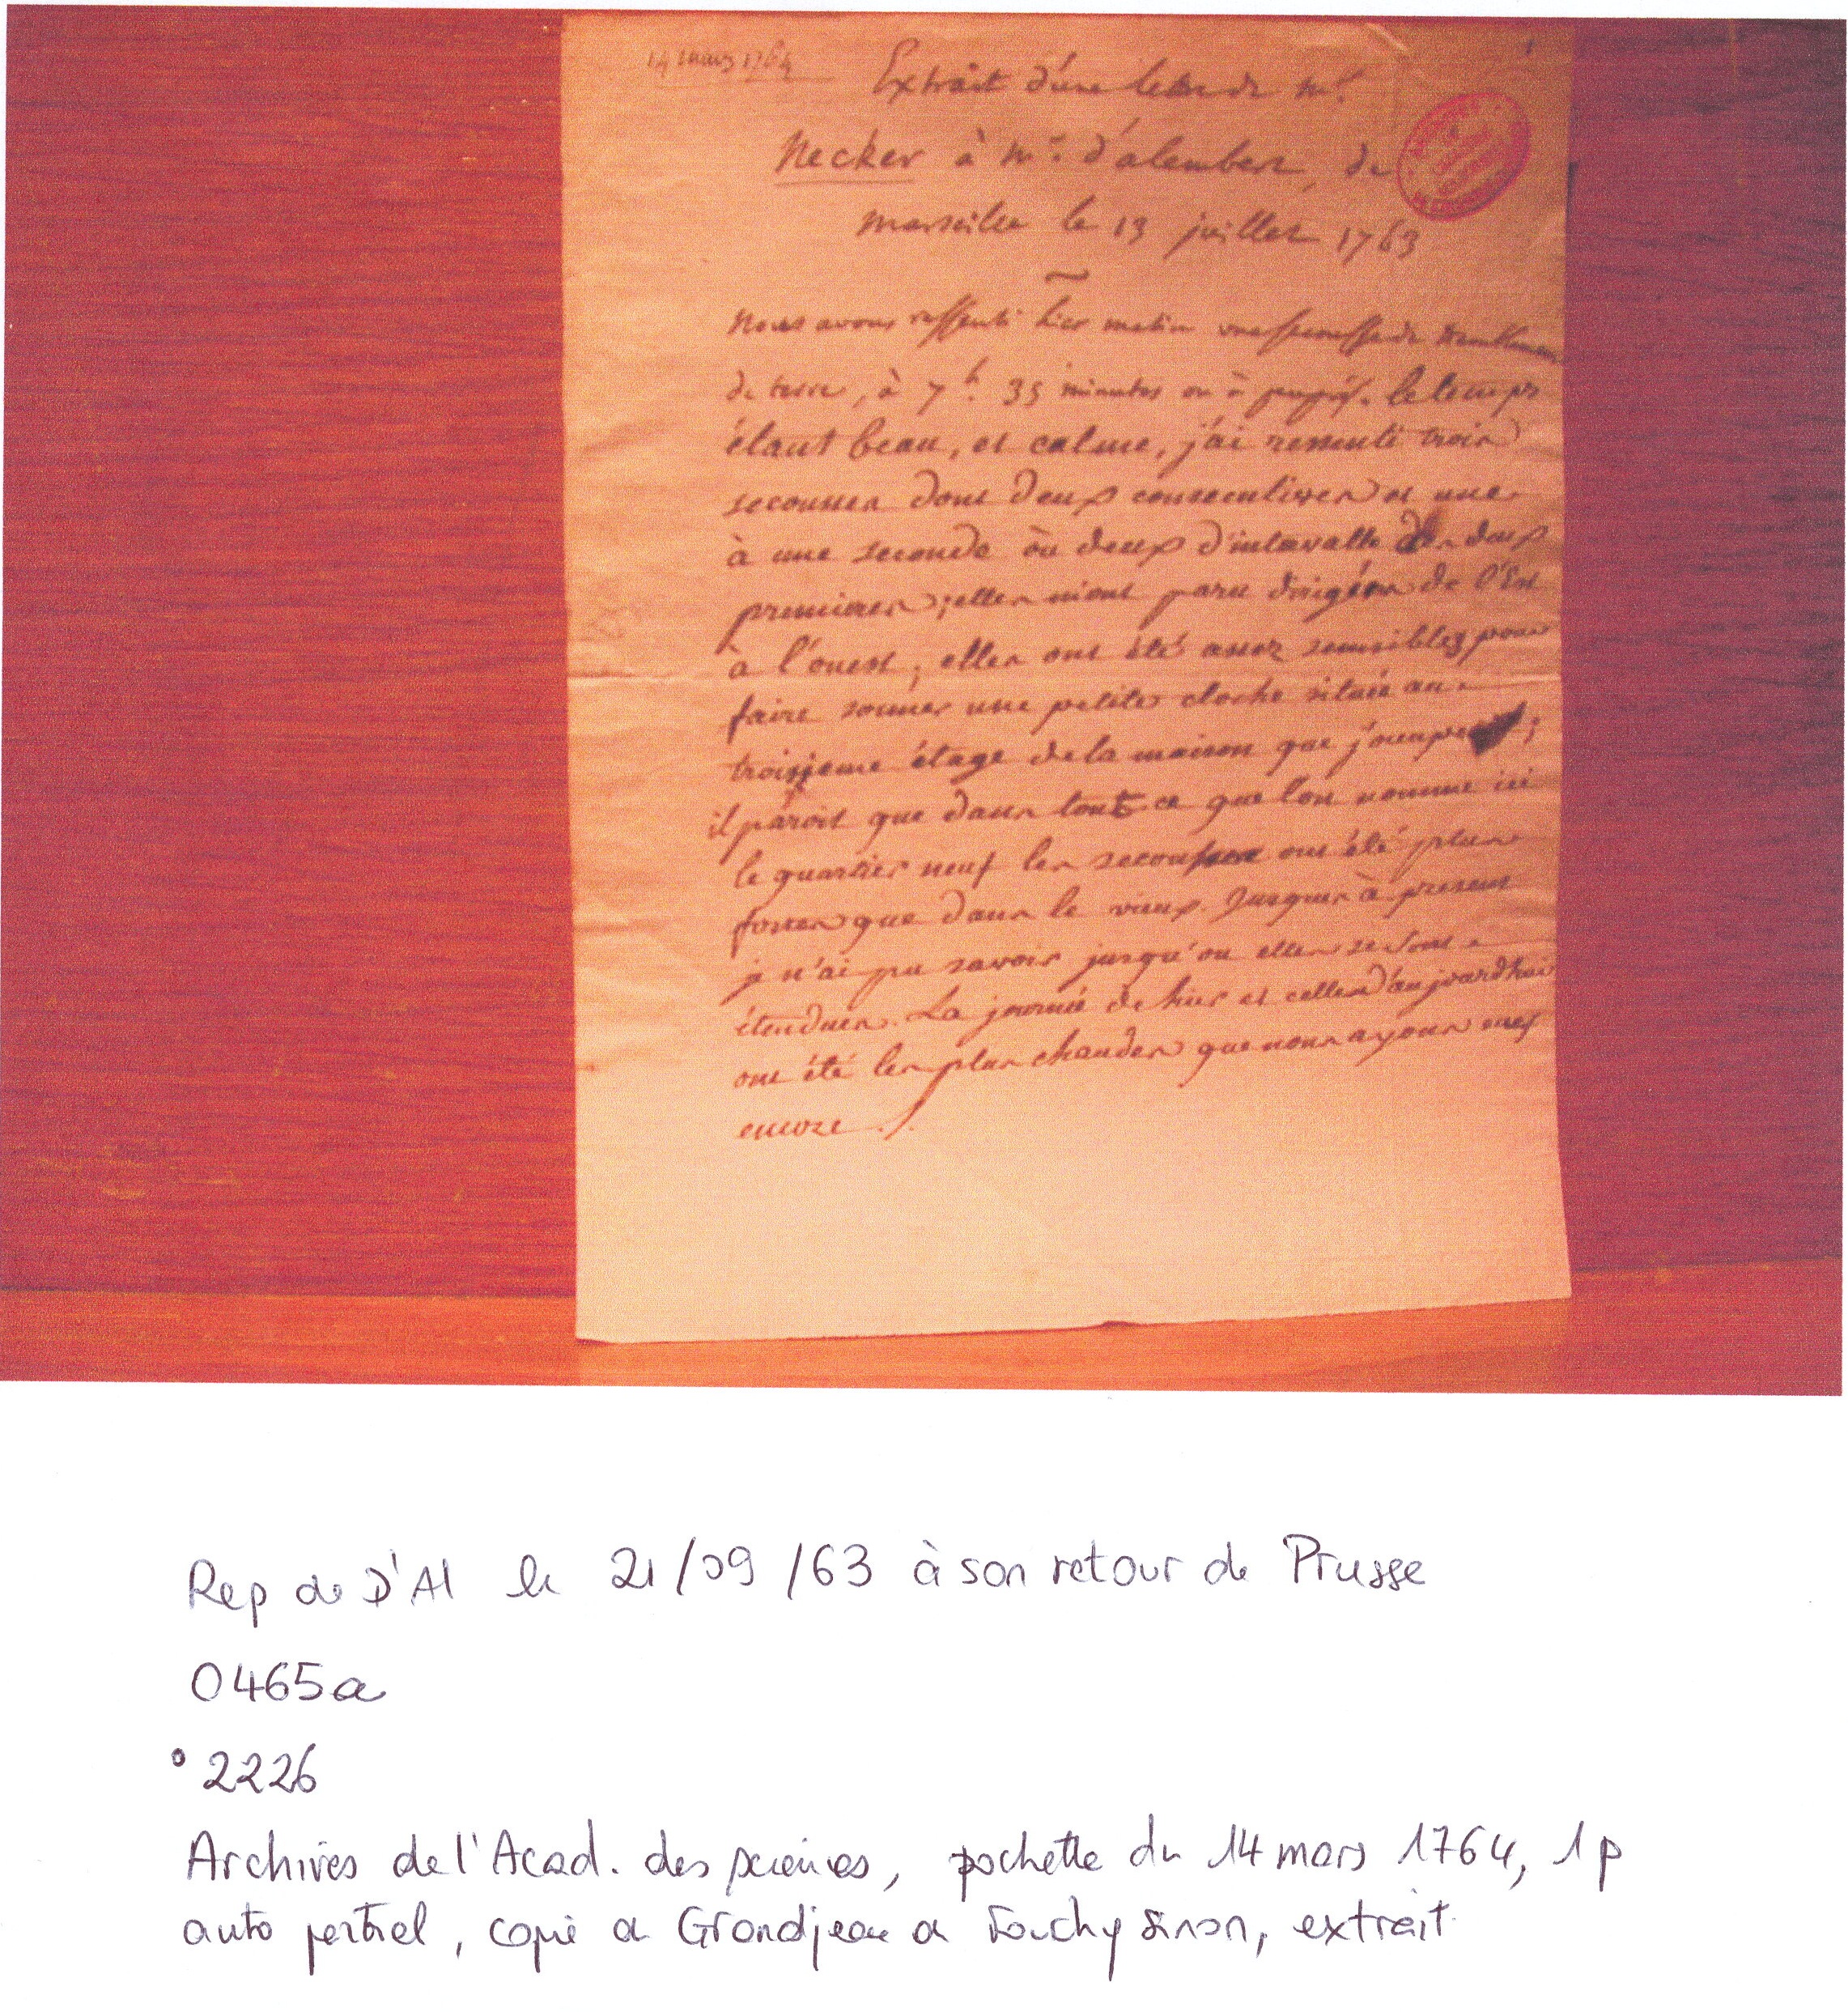 14 mars 1764
Extrait d'une lettre de Mr.
Necker à Mr. d'alembert, de
Marseille le 13 juillet 1763
Nous avons ressenti hier matin une secousse de tremblement
de terre, à 7h. 35 minutes ou à peu près. le temps
étant beau, et calme, j'ai ressenti trois
secousses dont deux consecutives et une
à une seconde ou deux d'intervalle des deux
premieres; elles m'ont paru dirigées de l'Est
à l'ouest; elles ont été assez sensibles pour
faire sonner une petite cloche située au
troisieme étage de la maison que j'occupe;
il paroit que dans tout ce que l'on nomme ici
le quartier neuf les secousses ont été plus
fortes que dans le vieux. Jusques à present
je n'ai pu savoir jusqu'ou elles se sont
étendues. La journée de hier et celle d'aujourdhui
ont été les plus chaudes que nous ayons eues
encore ./.
Rep de D'Al le 21/09/63 à son retour de Prusse
0465a
° 2226
Archives de l'Acad. des sciences, pochette du 14 mars 1764, 1 p
auto partiel, copie de Grandjean de Fouchy sinon, extrait